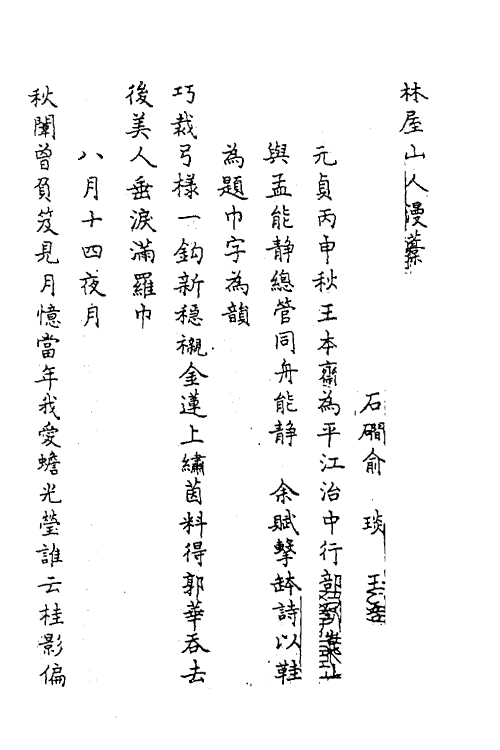 林屋山人漫藁
石磵俞琰玉吾
元貞丙申秋王本齋為平江治中行部
與孟能靜總管同舟能靜 余賦擊缽詩以鞋
為題巾字為韻
巧裁弓樣一鈎新穩襯金蓮上繡茵料得郭華吞去
後美人垂淚滿羅巾
八月十四夜月
秋闈曾負笈見月憶當年我愛蟾光瑩誰云桂影偏